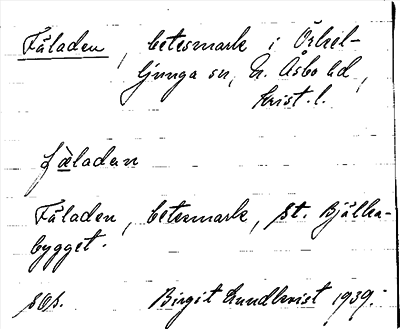 Fäladen, betesmark i Örkel-
ljunga sn, N. Åsbo hd,
Krist. l.
fäladan
Fäladen, betesmark, St. Bjälka-
bygget.
Birgit Lundkvist 1939.